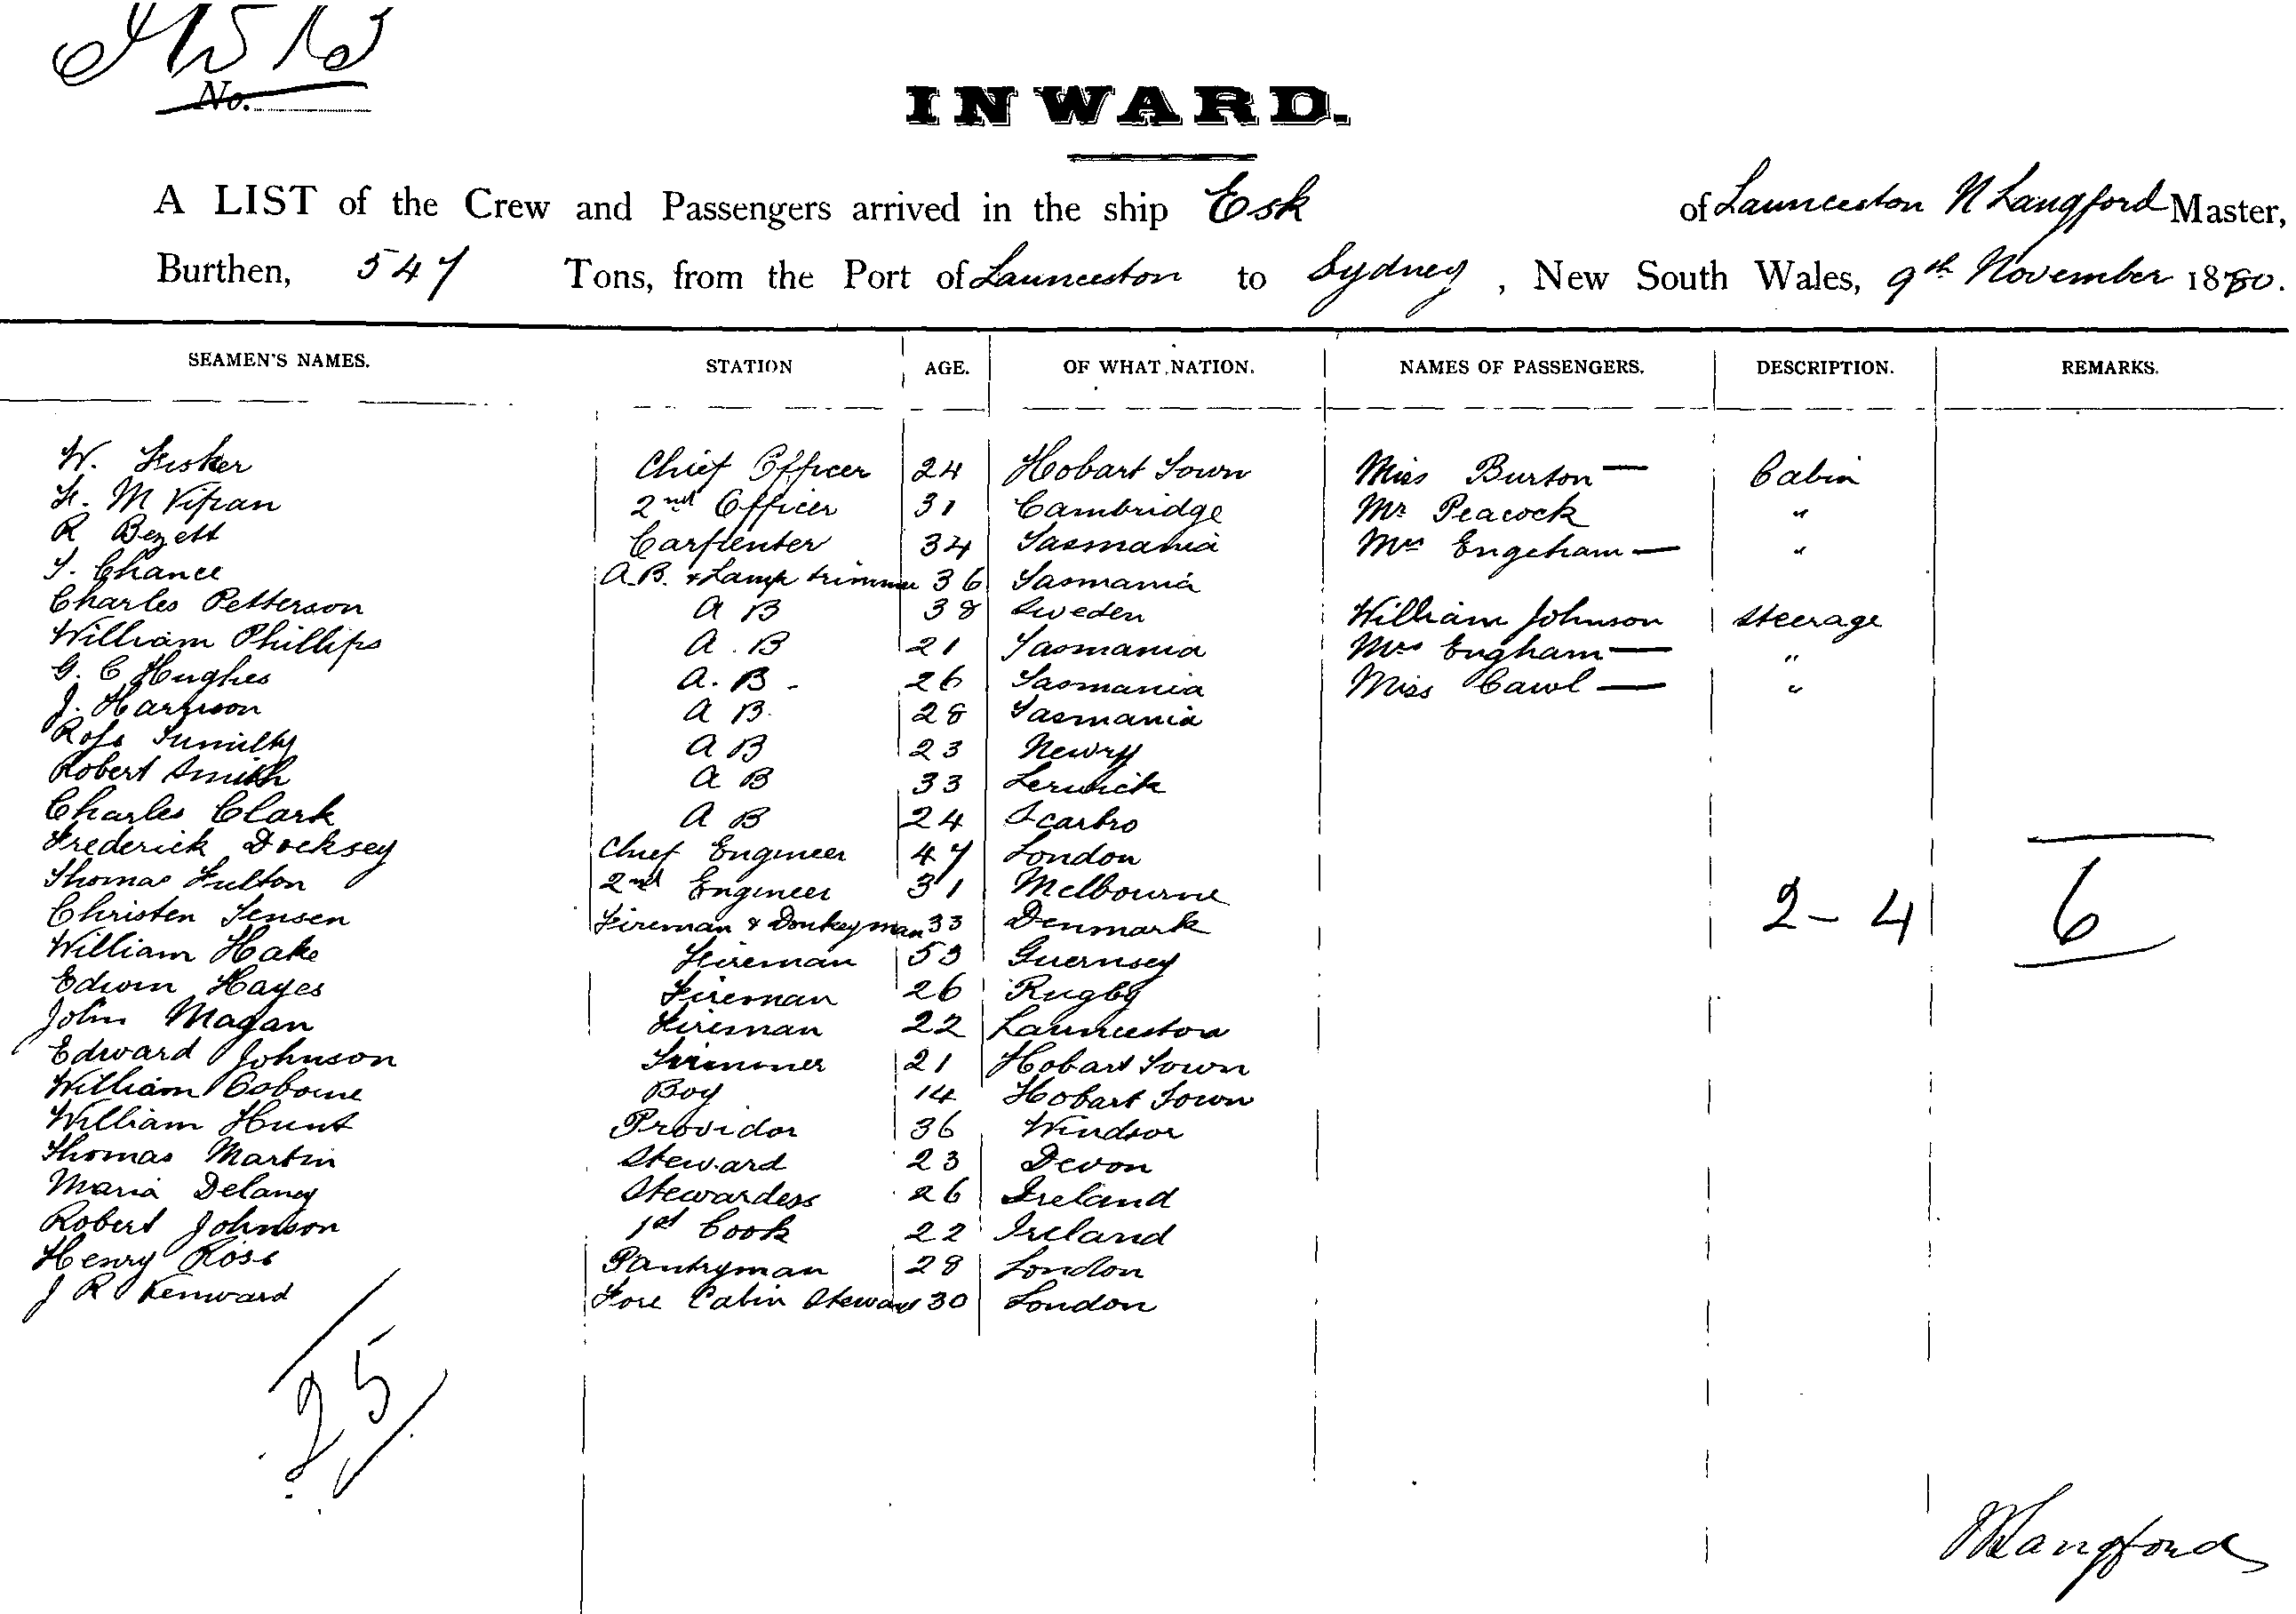 No.
INWARD.
A LIST of the Crew and Passengers arrived in the ship Esk of Launceston N Langford Master,
Burthen, 547 Tons, from the Port of Launceston to Sydney, New South Wales, 9th November 1880.
SEAMEN'S NAMES. STATION AGE. OF WHAT NATION. NAMES OF PASSENGERS. DESCRIPTION. REMARKS.
W. Fisher Chief Officer 24 Hobart Town Miss Burton — Cabin
2nd Officer 31 Cambridge Mr Peacock "
R Bezett Carpenter 34 Tasmania Mrs Engeham — "
T. Chance A.B. & Lamp trimmer 36 Tasmania
Charles Petterson A B 38 Sweden William Johnson Steerage
William Phillips A. B 21 Tasmania Mrs Engham — "
G. C Hughes A. B - 26 Tasmania Miss Cawl — "
J. Harrison A B. 28 Tasmania
Ross A B 23 Newry
Robert Smith A B 33 Lerwick
Charles Clark A B 24 Scarbro
Frederick Docksey Chief Engineer 47 London
Thomas Fulton 2nd Engineer 31 Melbourne
Christen Jensen Fireman & Donkeyman 33 Denmark 2 - 4 6
William Hake Fireman 53 Guernsey
Edwin Hayes Fireman 26 Rugby
John Magan Fireman 22 Launceston
Edward Johnson Trimmer 21 Hobart Town
William Osborne Boy 14 Hobart Town
William Hunt Providor 36 Windsor
Thomas Martin Steward 23 Devon
Maria Delaney Stewardess 26 Ireland
Robert Johnson 1st Cook 22 Ireland
Henry Ross Pantryman 28 London
J R Kenward Fore Cabin Steward 30 London
25
N Langford